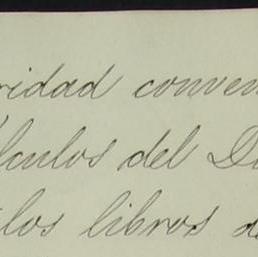 ridad conven
culos del D
los libros d